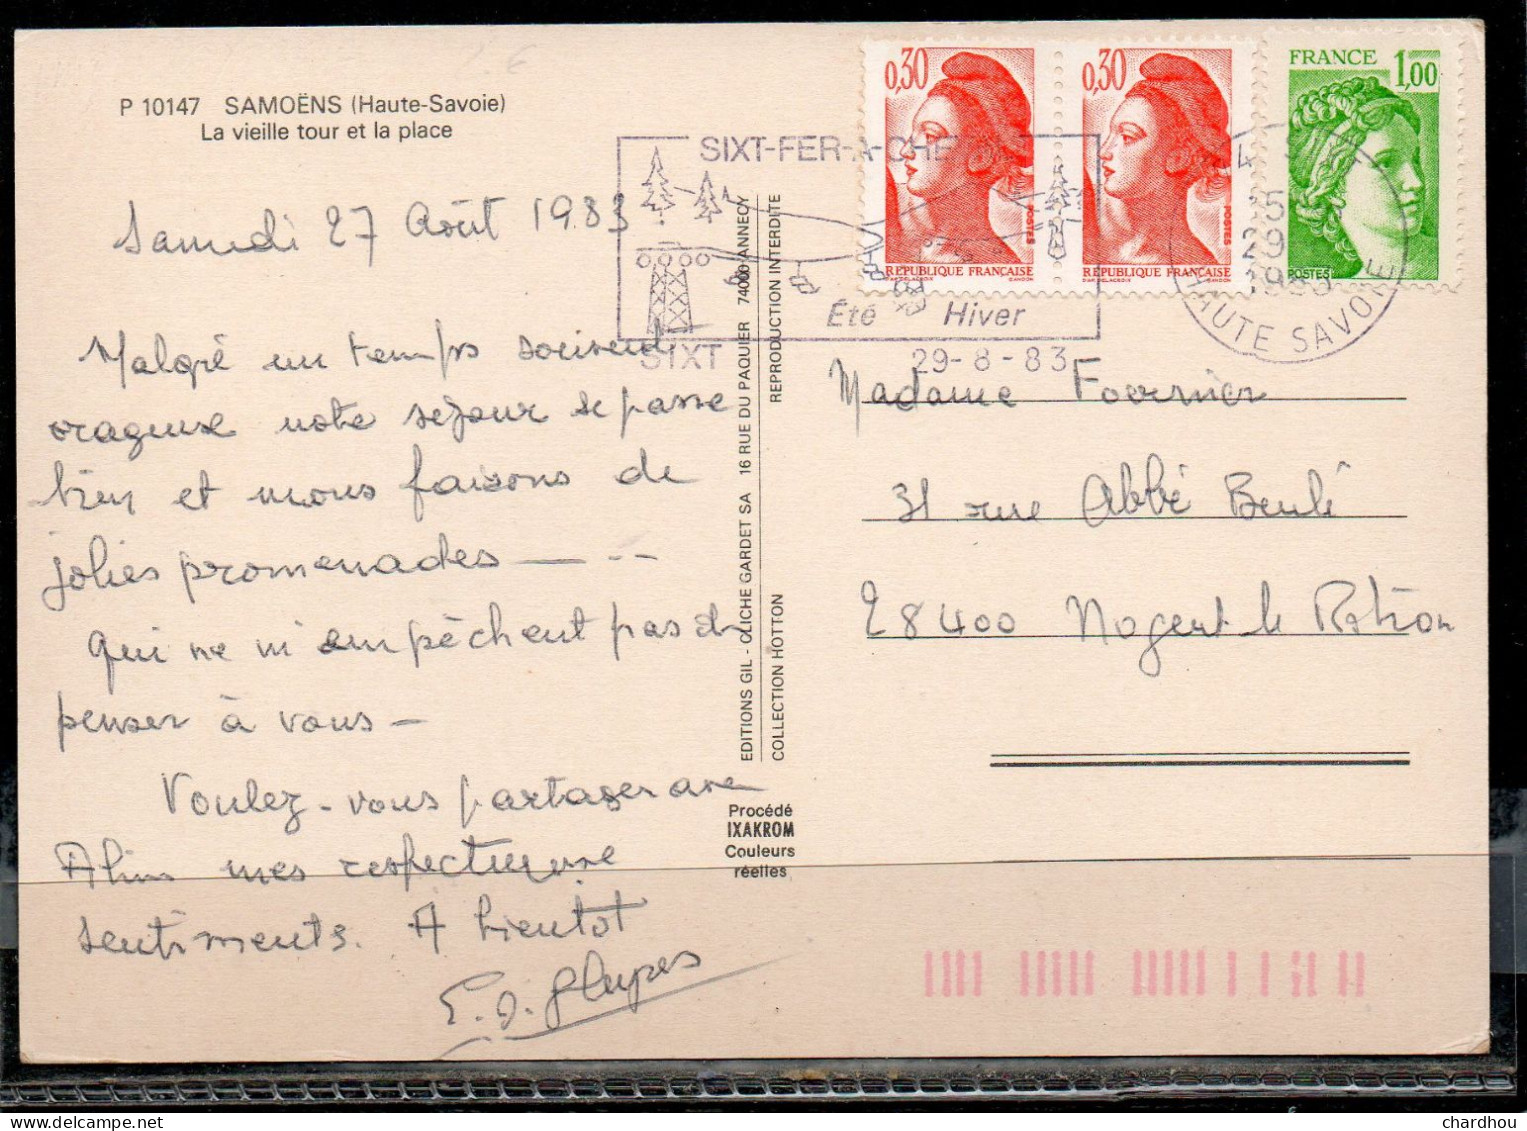 P 10147 SAMOËNS (Haute-Savoie)
La vieille tour et la place
Samedi 27 Août 1983
Malgré un temps souvent
orageux notre séjour se passe
bien et nous faisons de
jolies promenades — --
qui ne m'empêchent pas de
penser à vous —
Voulez-vous partager avec
mes respectueux
sentiments. A bientôt
EDITIONS GIL - CLICHE GARDET SA 16 RUE DU PAQUIER 74000 ANNECY
COLLECTION HOTTON REPRODUCTION INTERDITE
Procédé
IXAKROM
Couleurs
réelles
0,30
POSTES
RÉPUBLIQUE FRANÇAISE
D'AP. DELACROIX GANDON
0,30
POSTES
RÉPUBLIQUE FRANÇAISE
D'AP. DELACROIX GANDON
FRANCE 1,00
POSTES
SIXT-FER-A-CHE
Été Hiver
SIXT 29-8-83
HAUTE SAVOIE
Madame Fournier
31 rue Abbé Beulé
28400 Nogent le Rotrou
chardhou